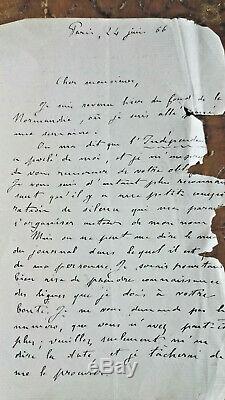 Paris, 24 juin 66
Cher monsieur,
Je suis revenu hier du fond de la
Normandie, où je suis allé
une semaine.
On m'a dit que l'Indépendan
a parlé de moi, et je m'empr
de vous remercier de votre obl
Je vous suis d'autant plus reconnais
sant qu'il y a une petite conspi
ration de silence qui me paraît
s'organiser autour de mon nom.
Mais on ne peut me dire le nu
du journal dans lequel il est
de ma personne. Je serais pourtant
bien aise de prendre connaissance
des lignes que je dois à votre
bonté. Je ne vous demande pas le
numéro, que vous n'avez peut-être
plus; veuillez seulement m'en
dire la date et je tâcherai de
me le procurer.